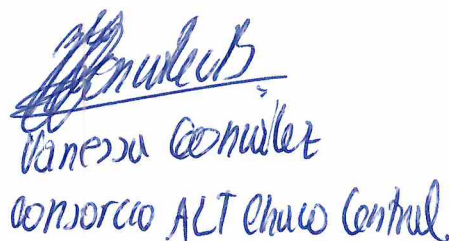 Vanessa González
consorcio ALT Chaco Central.